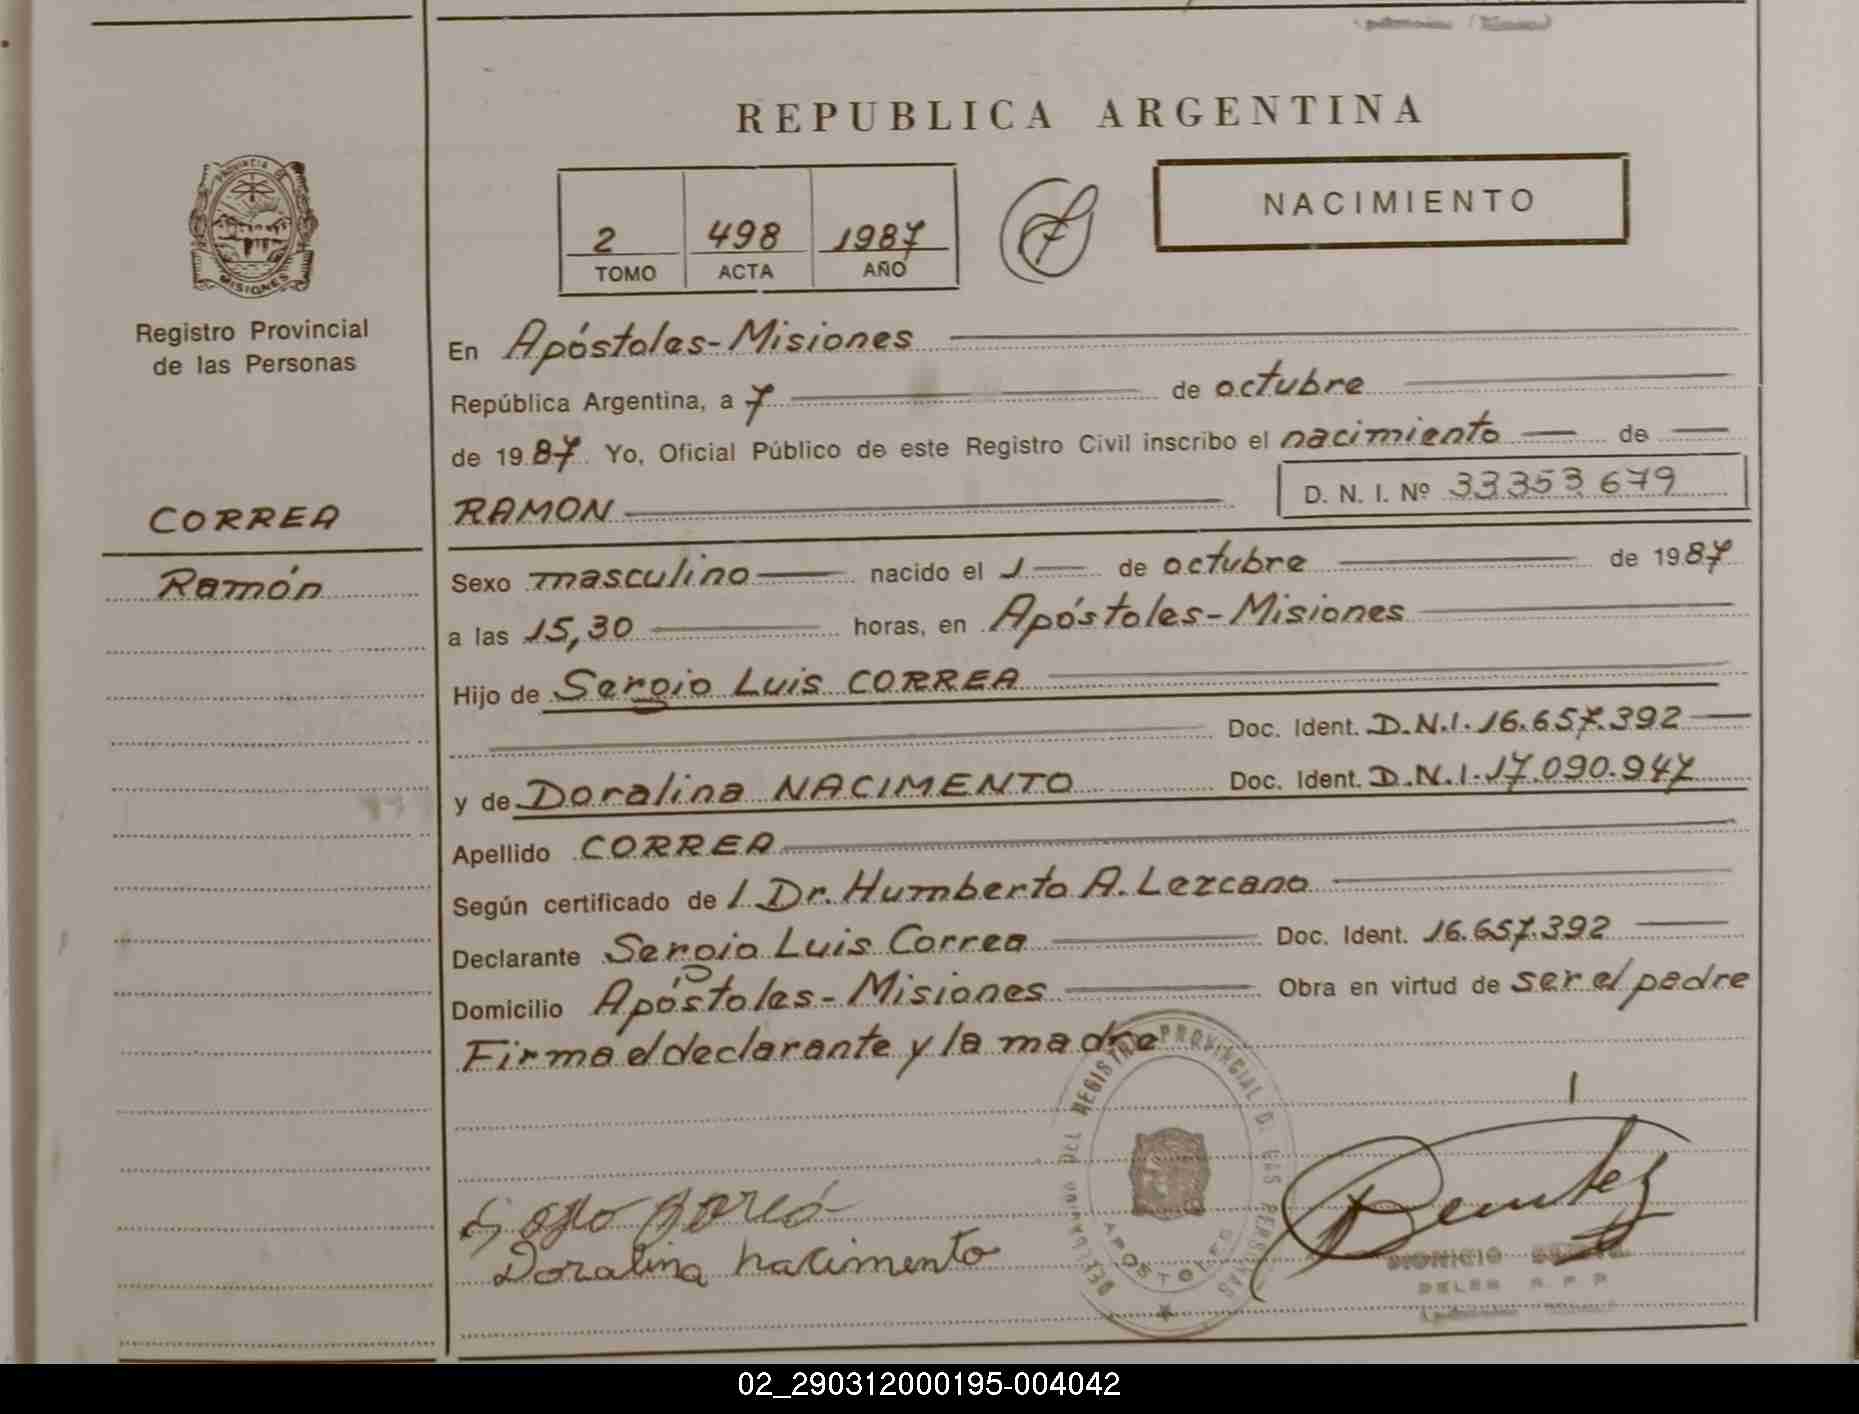 REPUBLICA ARGENTINA
PROVINCIA DE
MISIONES
Registro Provincial
de las Personas
CORREA
Ramón
2 498 1987
TOMO ACTA AÑO
NACIMIENTO
En Apóstoles-Misiones
República Argentina, a 7 de octubre
de 1987. Yo, Oficial Público de este Registro Civil inscribo el nacimiento de
RAMON D. N. I. Nº 33353679
Sexo masculino nacido el 1 de octubre de 1987
a las 15,30 horas, en Apóstoles-Misiones
Hijo de Sergio Luis CORREA
Doc. Ident. D.N.I. 16.657.392
y de Doralina NACIMENTO Doc. Ident. D.N.I. 17.090.947
Apellido CORREA
Según certificado de l Dr. Humberto A. Lezcano
Declarante Sergio Luis Correa Doc. Ident. 16.657.392
Domicilio Apóstoles-Misiones Obra en virtud de ser el padre
Firma el declarante y la madre
DELEGACION DEL REGISTRO PROVINCIAL D. LAS PERSONAS
APOSTOLES
Doralina nacimento
Benitez
DIONICIO
DELEG R.P.P.
02_290312000195-004042